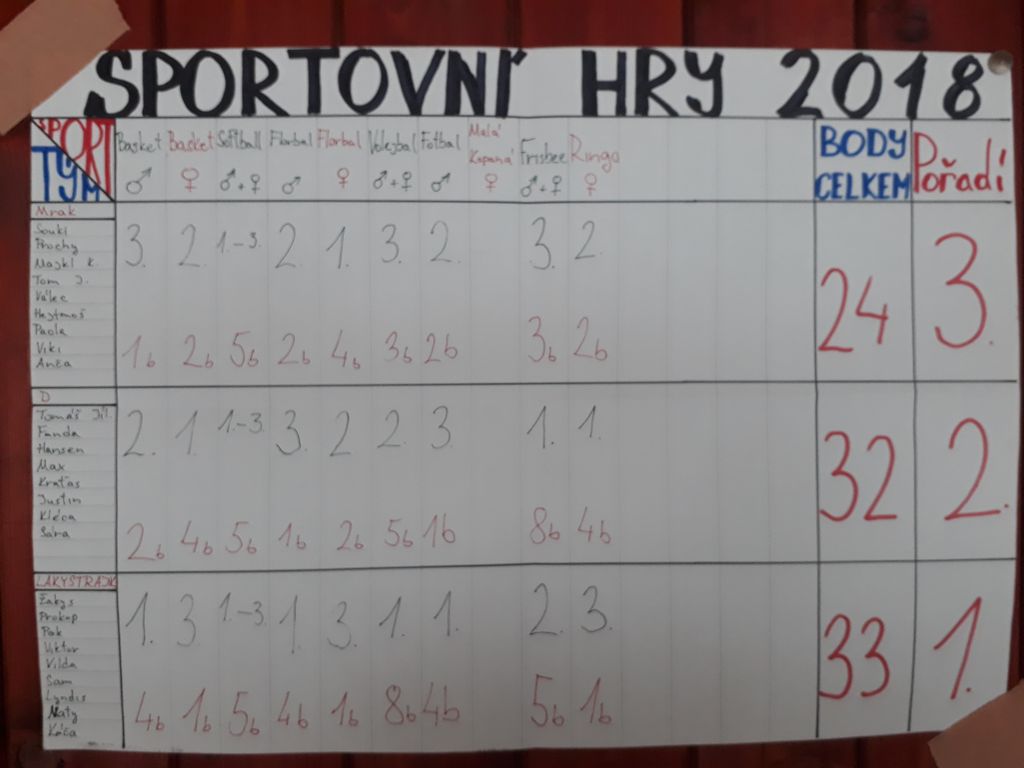 SPORTOVNÍ HRY 2018
SPORT Basket Basket Softball Florbal Florbal Volejbal Fotbal Malá Kopaná Frisbee Ringo BODY CELKEM Pořadí
TÝM ♂ ♀ ♂+♀ ♂ ♀ ♂+♀ ♂ ♀ ♂+♀ ♀
Mrak
Souki
Prochy
Majkl K.
Tom J.
Válec
Hejtmoš
Paola
Viki
Anča
3. 2. 1.-3. 2. 1. 3. 2. 3. 2.
1b 2b 5b 2b 4b 3b 2b 3b 2b
24 3.
D
Tomáš Jíl.
Fanda
Hansen
Max
Kraťas
Justin
Kléca
Sára
2. 1. 1.-3. 3. 2 2. 3. 1. 1.
2b 4b 5b 1b 2b 5b 1b 8b 4b
32 2.
Prokop
Pok
Viktor
Vilda
Sam
Lyndis
Maty
Káča
1. 3. 1.-3. 1. 3. 1. 1. 2. 3.
4b 1b 5b 4b 1b 8b 4b 5b 1b
33 1.